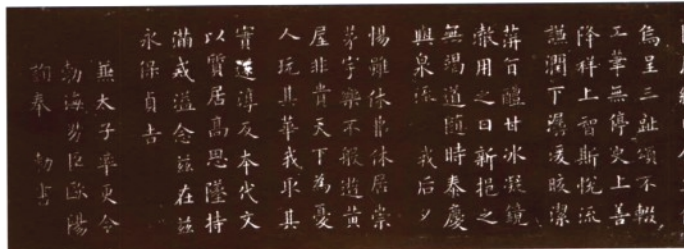 烏呈三趾頌不輟
工筆無停史上善
降祥上智斯悅流
謙潤下潺湲皎潔
蓱旨醴甘冰凝鏡
澈用之日新挹之
無竭道隨時泰慶
與泉流 我后夕
惕雖休弗休居崇
茅宇樂不般遊黃
屋非貴天下為憂
人玩其華我取其
實還淳反本代文
以質居高思墜持
滿戒溢念茲在茲
永保貞吉
兼太子率更令
勃海男臣歐陽
詢奉 勅書